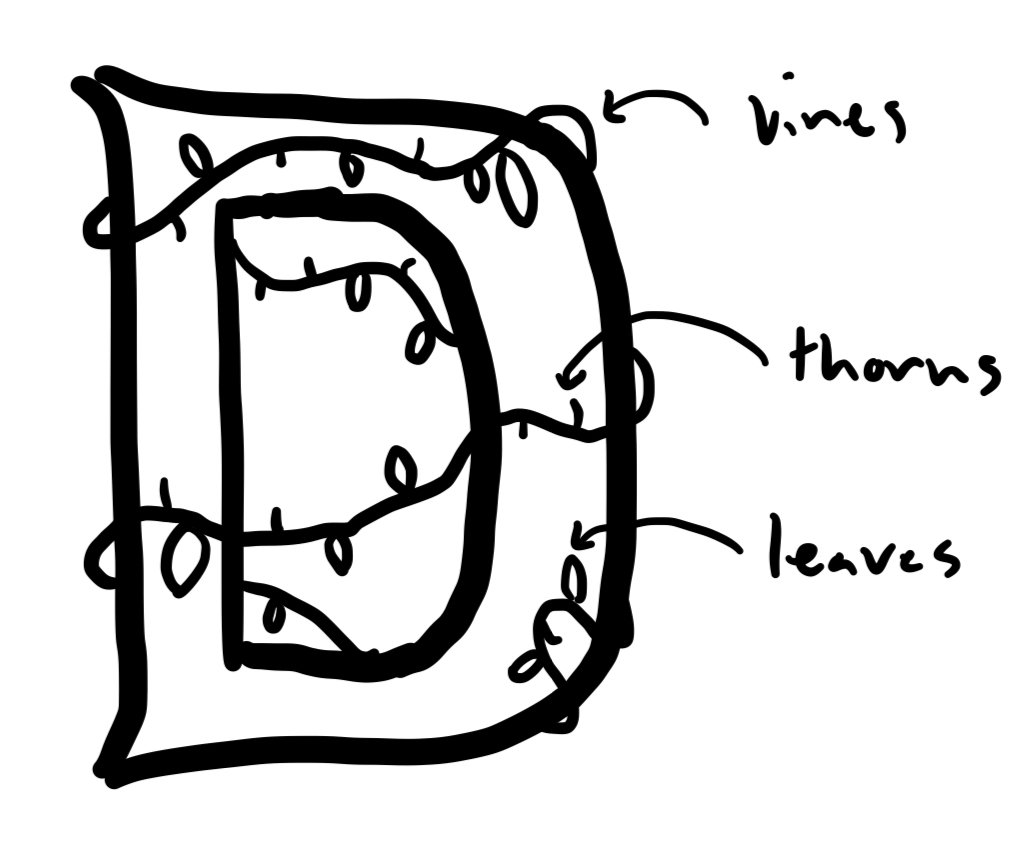 D
vines
thorns
leaves